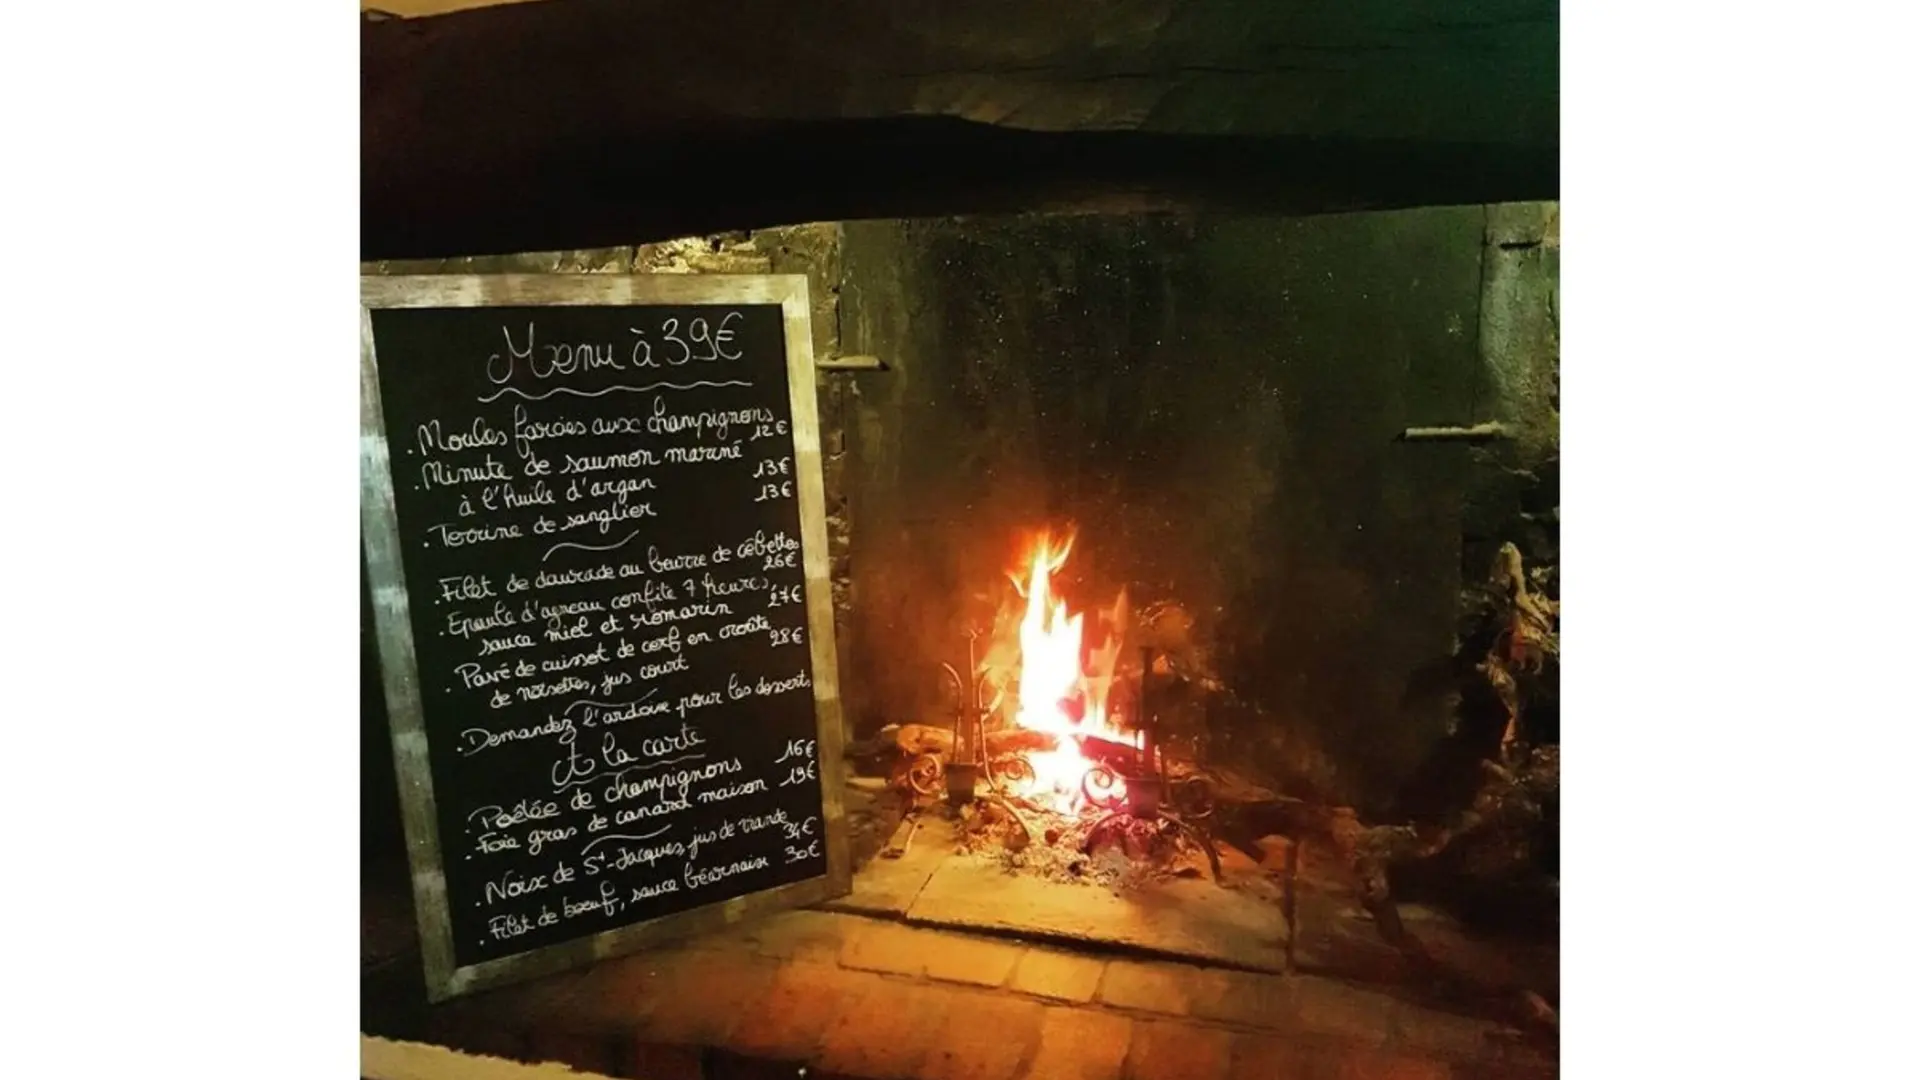 Menu à 39€
. Moules farcies aux champignons
12€
. Minute de saumon mariné
à l'huile d'argan 13€
. Terrine de sanglier 13€
. Filet de daurade au beurre de cébettes
26€
. Epaule d'agneau confite 7 heures,
sauce miel et romarin 27€
. Pavé de cuissot de cerf en croûte
de noisettes, jus court 28€
. Demandez l'ardoise pour les desserts
A la carte
. Poêlée de champignons 16€
. Foie gras de canard maison 19€
. Noix de St-Jacques, jus de viande
34€
. Filet de boeuf, sauce béarnaise 30€